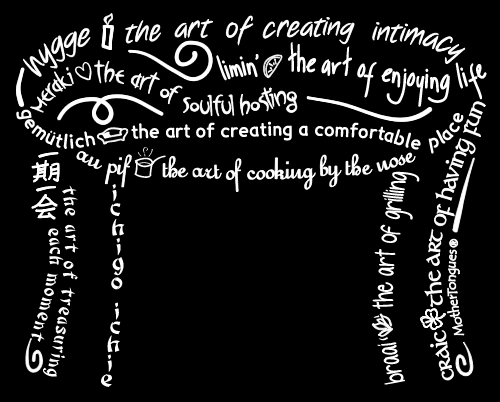 hygge the art of creating intimacy
limin' the art of enjoying life
Meraki the art of soulful hosting
gemütlich the art of creating a comfortable place
au pif the art of cooking by the nose
一期一会
the art of treasuring
each moment
ichigo ichie
braai the art of grilling
craic the art of having fun
MotherTongues®